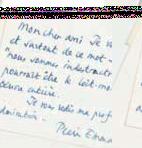 Mon cher ami Je v
et surtout de ce mot -
"nous sommes indestructi
pourrait être le leit-mo
œuvre entière.
Je vous redis ma prof
admiration.
Pierre Emma